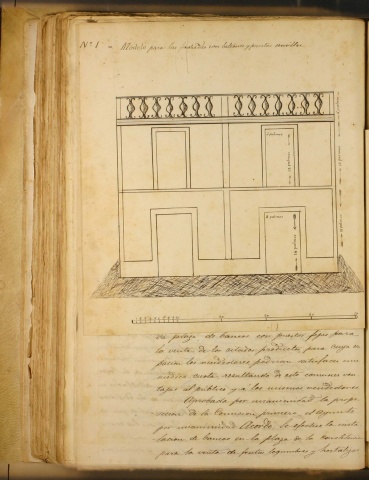 Nº 1 - Modelo para las fachadas con balcones y puertas sencillas.
palmos
palmos
8 palmos
palmos
en paraje de bancos con puestos fijos para
la venta de los citados productos, para cuyo
los vendedores podrian satisfacer una
modica cuota resultando de esto comunes ven-
tajas al publico y a los mismos vendedores
Aprobada por unanimidad la propo-
sicion de la Comision primera, el Ayunto
por unanimidad Acordó: Se efectue la insta-
lacion de bancos en la plaza de la Constitucion
para la venta de frutas, legumbres y hortalizas